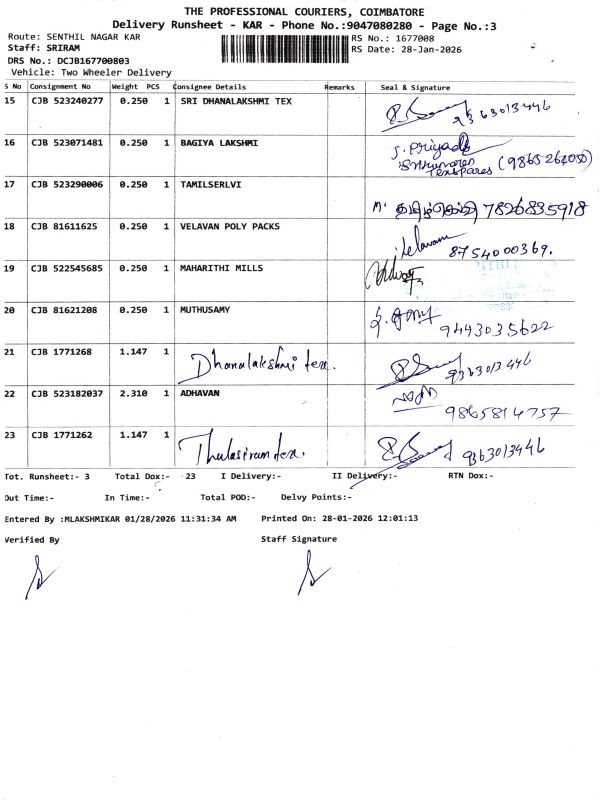 THE PROFESSIONAL COURIERS, COIMBATORE
Delivery Runsheet - KAR - Phone No.:9047080280 - Page No.:3
Route: SENTHIL NAGAR KAR
RS No.: 1677008
Staff: SRIRAM
RS Date: 28-Jan-2026
DRS No.: DCJB167700803
Vehicle: Two Wheeler Delivery
S No Consignment No Weight PCS Consignee Details Remarks Seal & Signature
15 CJB 523240277 0.250 1 SRI DHANALAKSHMI TEX 9363013446
16 CJB 523071481 0.250 1 BAGIYA LAKSHMI J. Priyadh
Texspares (9865262050)
17 CJB 523290006 0.250 1 TAMILSERLVI M. தமிழ்செல்வி 7826835918
18 CJB 81611625 0.250 1 VELAVAN POLY PACKS Velavan
8754000369.
19 CJB 522545685 0.250 1 MAHARITHI MILLS
20 CJB 81621208 0.250 1 MUTHUSAMY
9443035622
21 CJB 1771268 1.147 1 Dhanalakshmi tex. 9363013446
22 CJB 523182037 2.310 1 ADHAVAN
9865814757
23 CJB 1771262 1.147 1 Thulasiram tex. 9363013446
Tot. Runsheet:- 3 Total Dox:- 23 I Delivery:- II Delivery:- RTN Dox:-
Out Time:- In Time:- Total POD:- Delvy Points:-
Entered By :MLAKSHMIKAR 01/28/2026 11:31:34 AM Printed On: 28-01-2026 12:01:13
Verified By Staff Signature